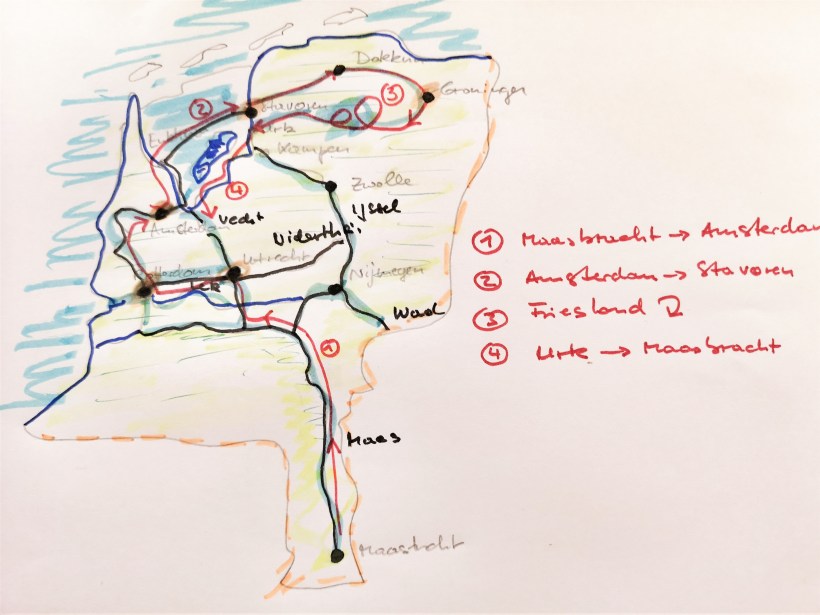 Dokkum
Groningen
3
2
Stavoren
Urk
Kampen
Zwolle
4
Ijssel
Vecht
Amsterdam
Utrecht
Rotterdam
Lek
Nijmegen
Waal
1
Maas
Maastricht
1 Maasbracht → Amsterdam
2 Amsterdam → Stavoren
3 Friesland
4 Urk → Maasbracht